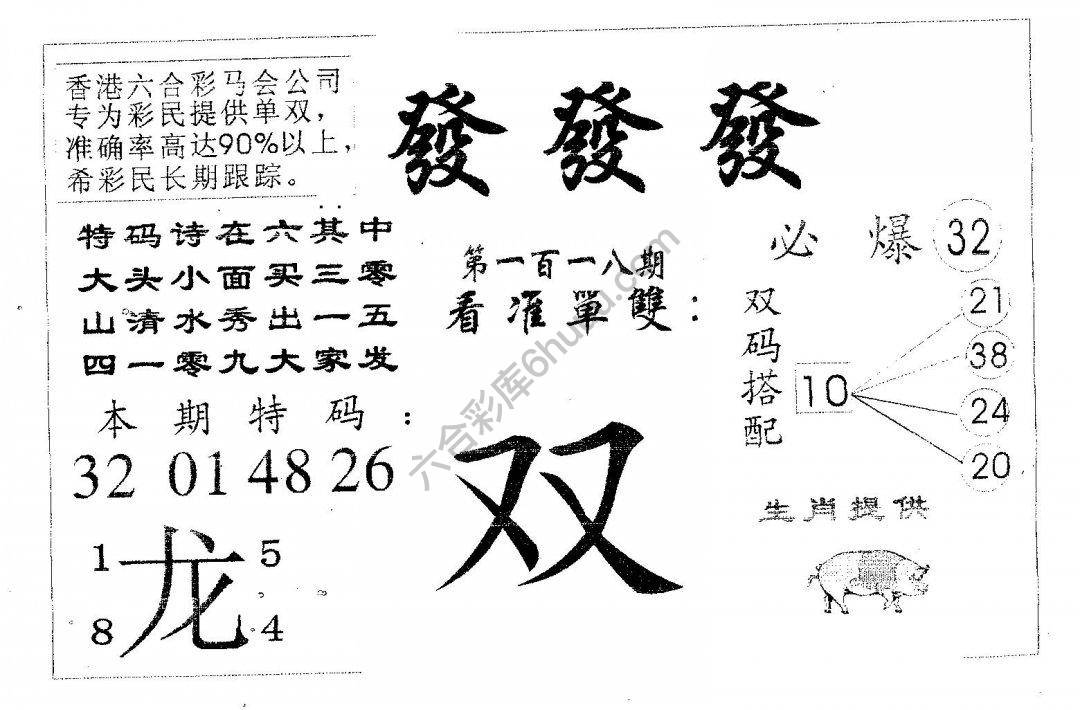 香港六合彩马会公司
专为彩民提供单双,
准确率高达90%以上,
希彩民长期跟踪。
發 發 發
特码诗在六其中
大头小面买三零
山清水秀出一五
四一零九大家发
第一百一八期
看准單雙:
双
必爆 32
双码搭配
10
21
38
24
20
本期特码:
32 01 48 26
1 龙 5
8 4
生肖提供
六合彩库6huku.com